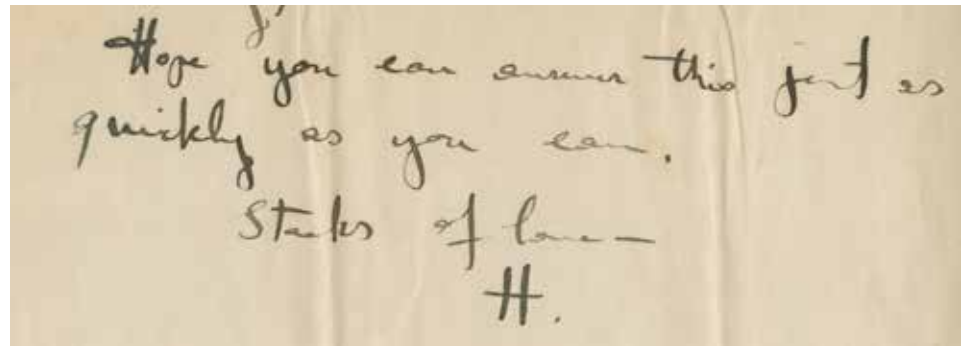 Hope you can answer this just as
quickly as you can.
Stacks of love —
H.